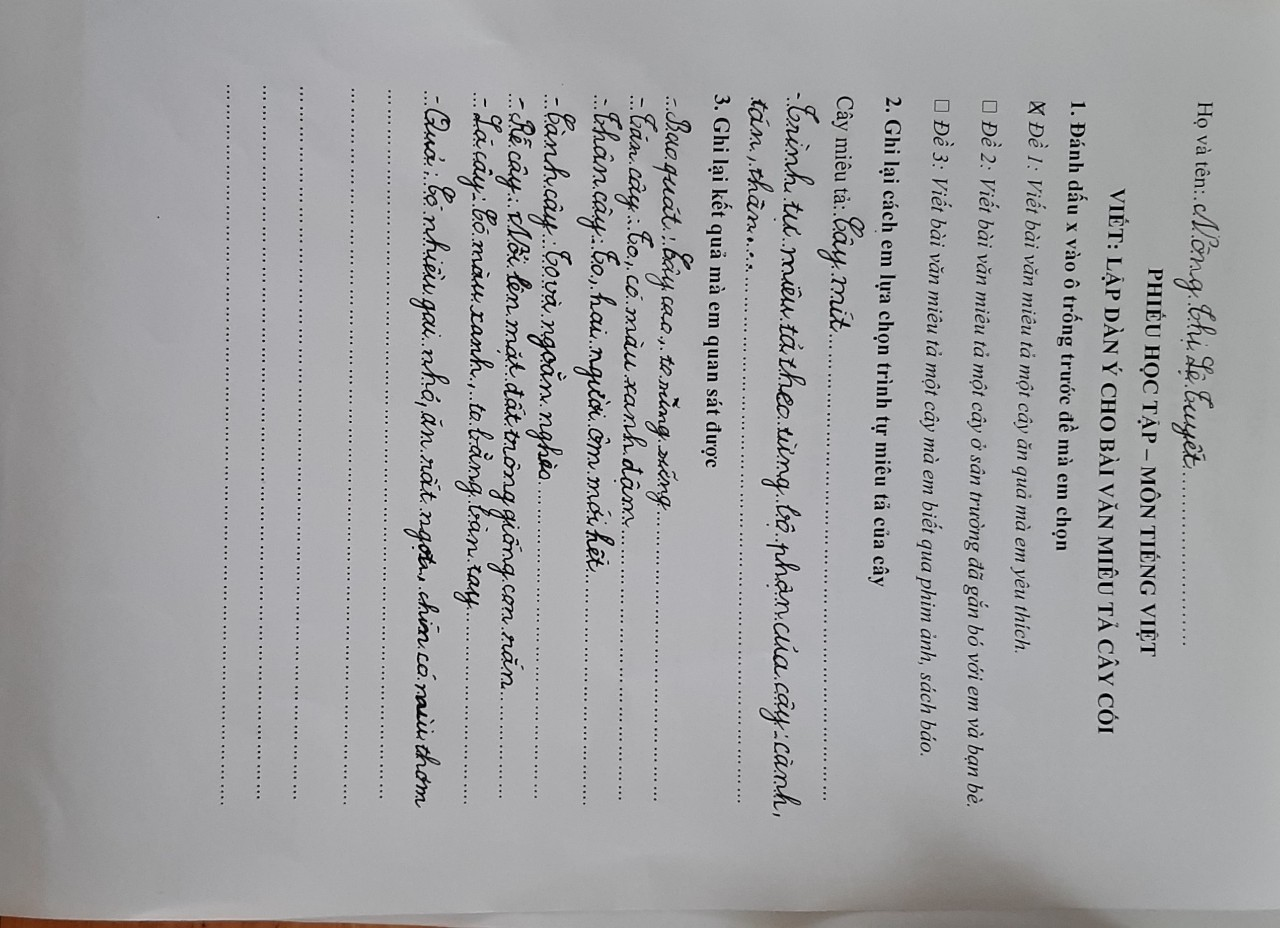 Họ và tên: Nông Thị Lệ Tuyết
PHIẾU HỌC TẬP – MÔN TIẾNG VIỆT
VIẾT: LẬP DÀN Ý CHO BÀI VĂN MIÊU TẢ CÂY CỐI
1. Đánh dấu x vào ô trống trước đề mà em chọn
X Đề 1: Viết bài văn miêu tả một cây ăn quả mà em yêu thích.
☐ Đề 2: Viết bài văn miêu tả một cây ở sân trường đã gắn bó với em và bạn bè.
☐ Đề 3: Viết bài văn miêu tả một cây mà em biết qua phim ảnh, sách báo.
2. Ghi lại cách em lựa chọn trình tự miêu tả của cây
Cây miêu tả: Cây mít
- Trình tự miêu tả theo từng bộ phận của cây: cành,
tán, thân...
3. Ghi lại kết quả mà em quan sát được
- Bao quát: Cây cao, to sừng sững
- Tán cây: To, có màu xanh đậm
- Thân cây: To, hai người ôm mới hết
- Cành cây: To và ngoằn nghèo
- Rễ cây: Nổi lên mặt đất trông giống con rắn
- Lá cây: Có màu xanh, to bằng bàn tay
- Quả: Có nhiều gai nhỏ, ăn rất ngọt, chín có mùi thơm